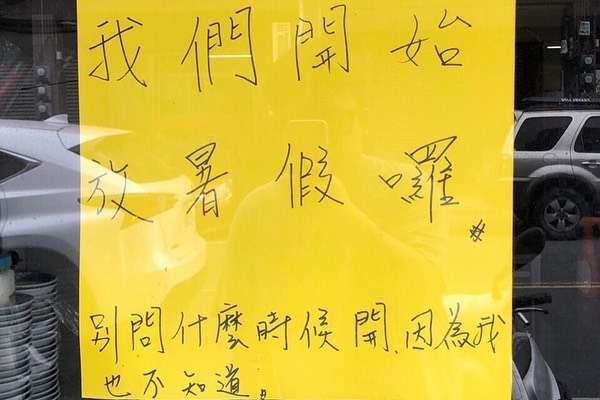 我們開始
放暑假囉。
別問什麼時候開、因為我
也不知道。